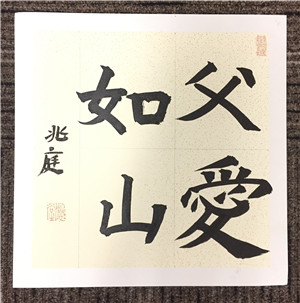 父愛
如山
兆庭